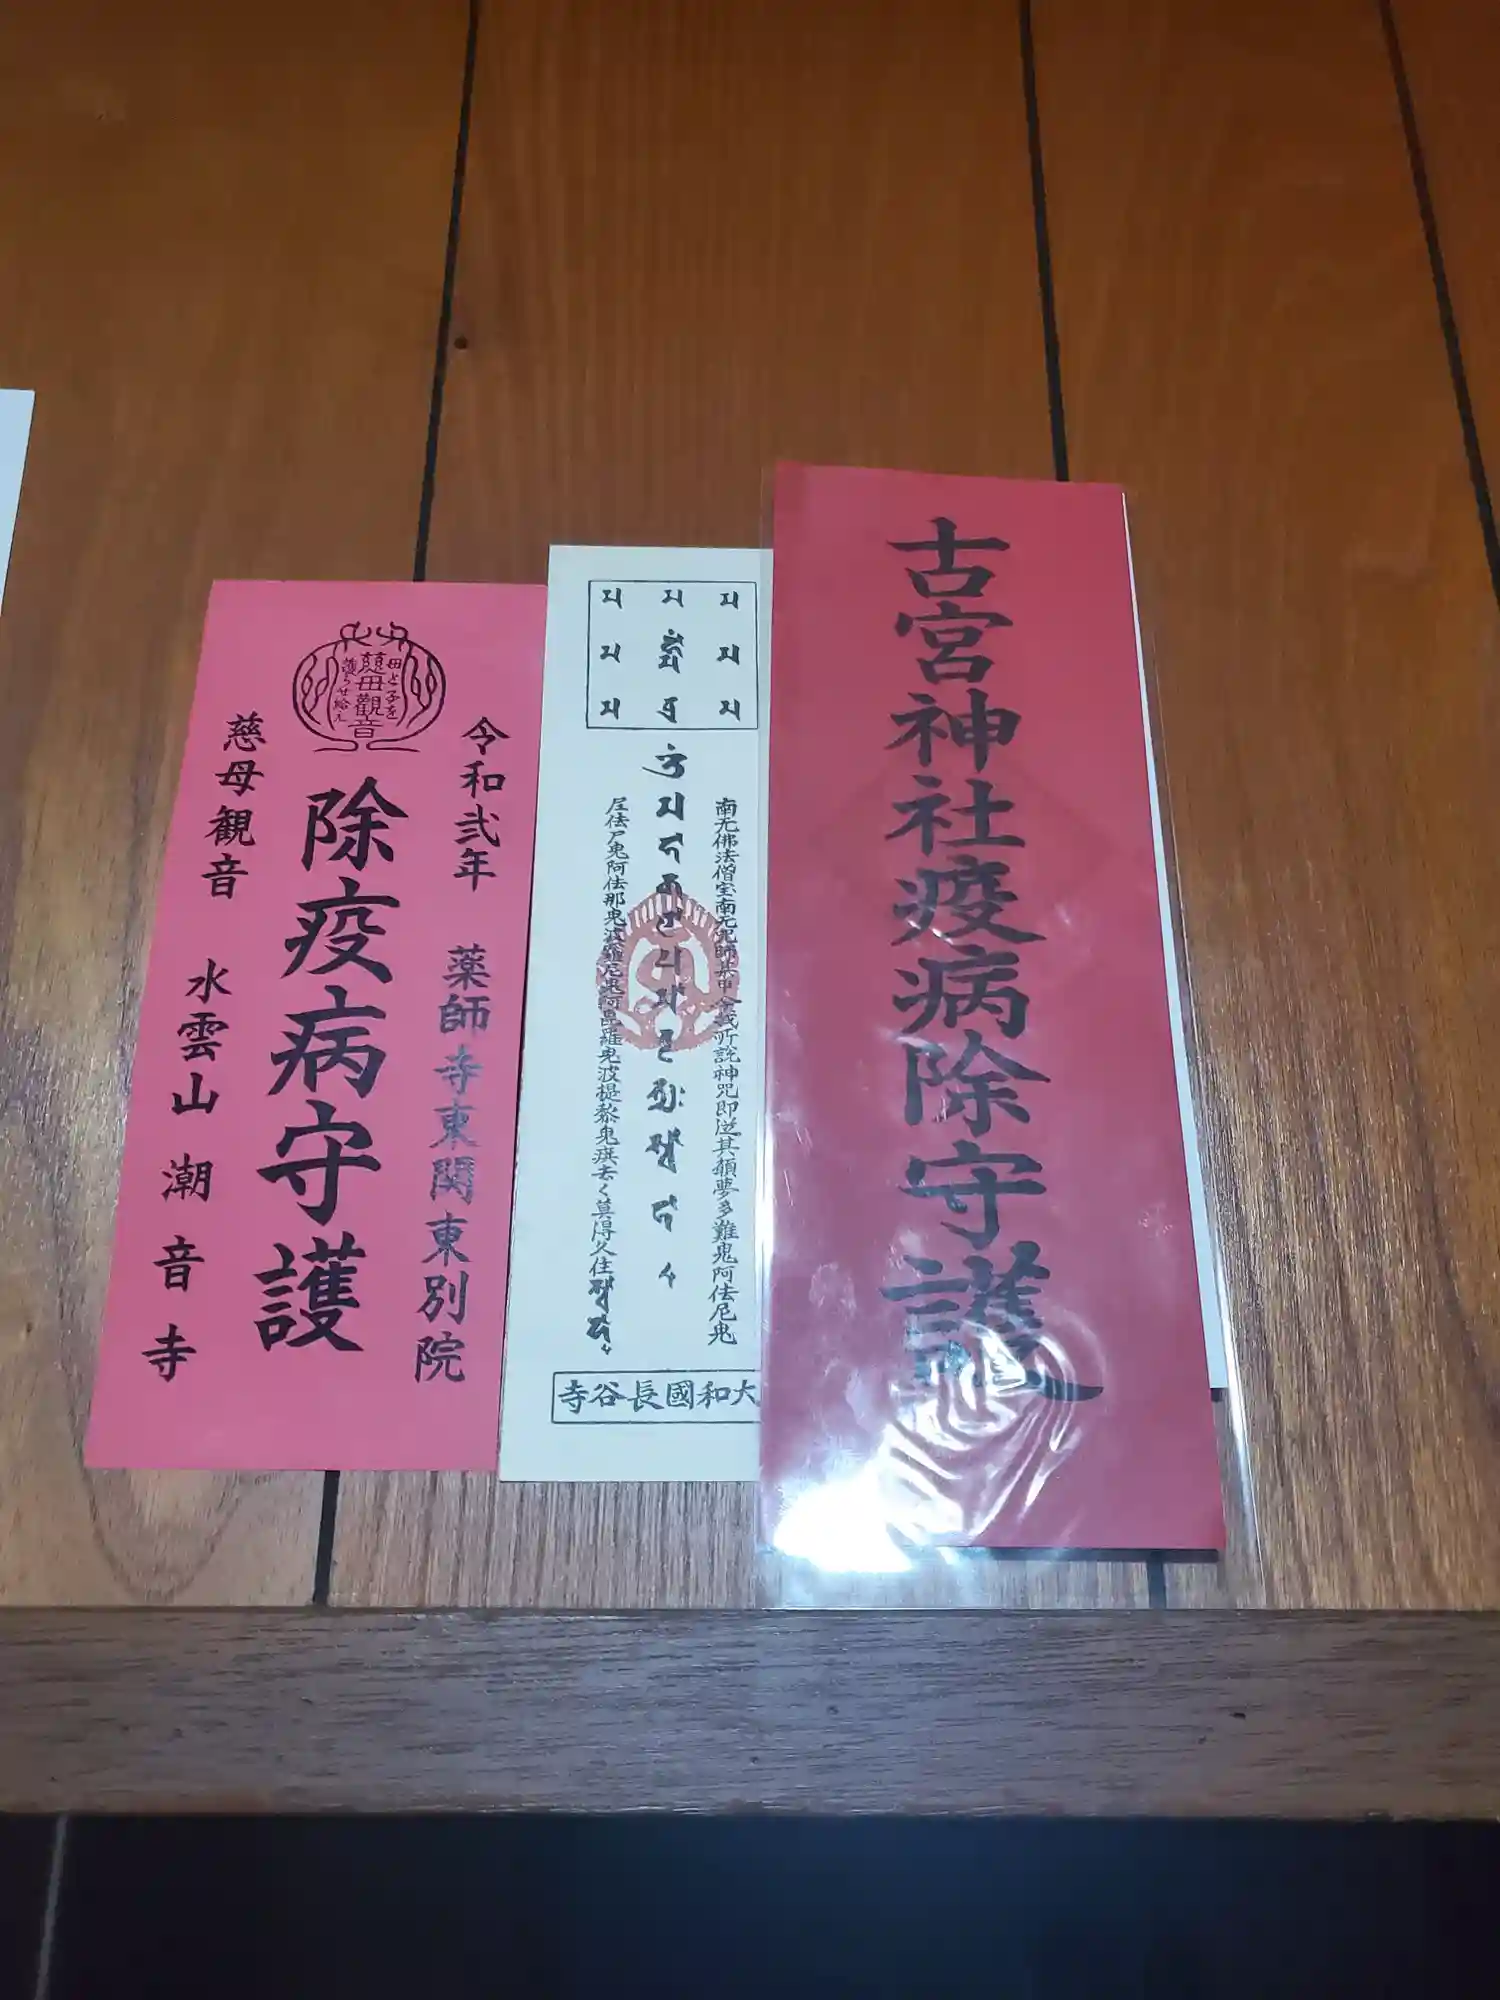 慈母觀音
母と子を
護らせ給え
令和弐年
薬師寺東関東別院
除疫病守護
慈母観音
水雲山潮音寺
南无佛法僧宝南无
神咒即
夢多難鬼阿佉尼鬼
尼佉尸鬼阿佉那鬼波羅尼鬼阿毘羅鬼波提黎鬼疾去く莫得久住
大和國長谷寺
古宮神社疫病除守護